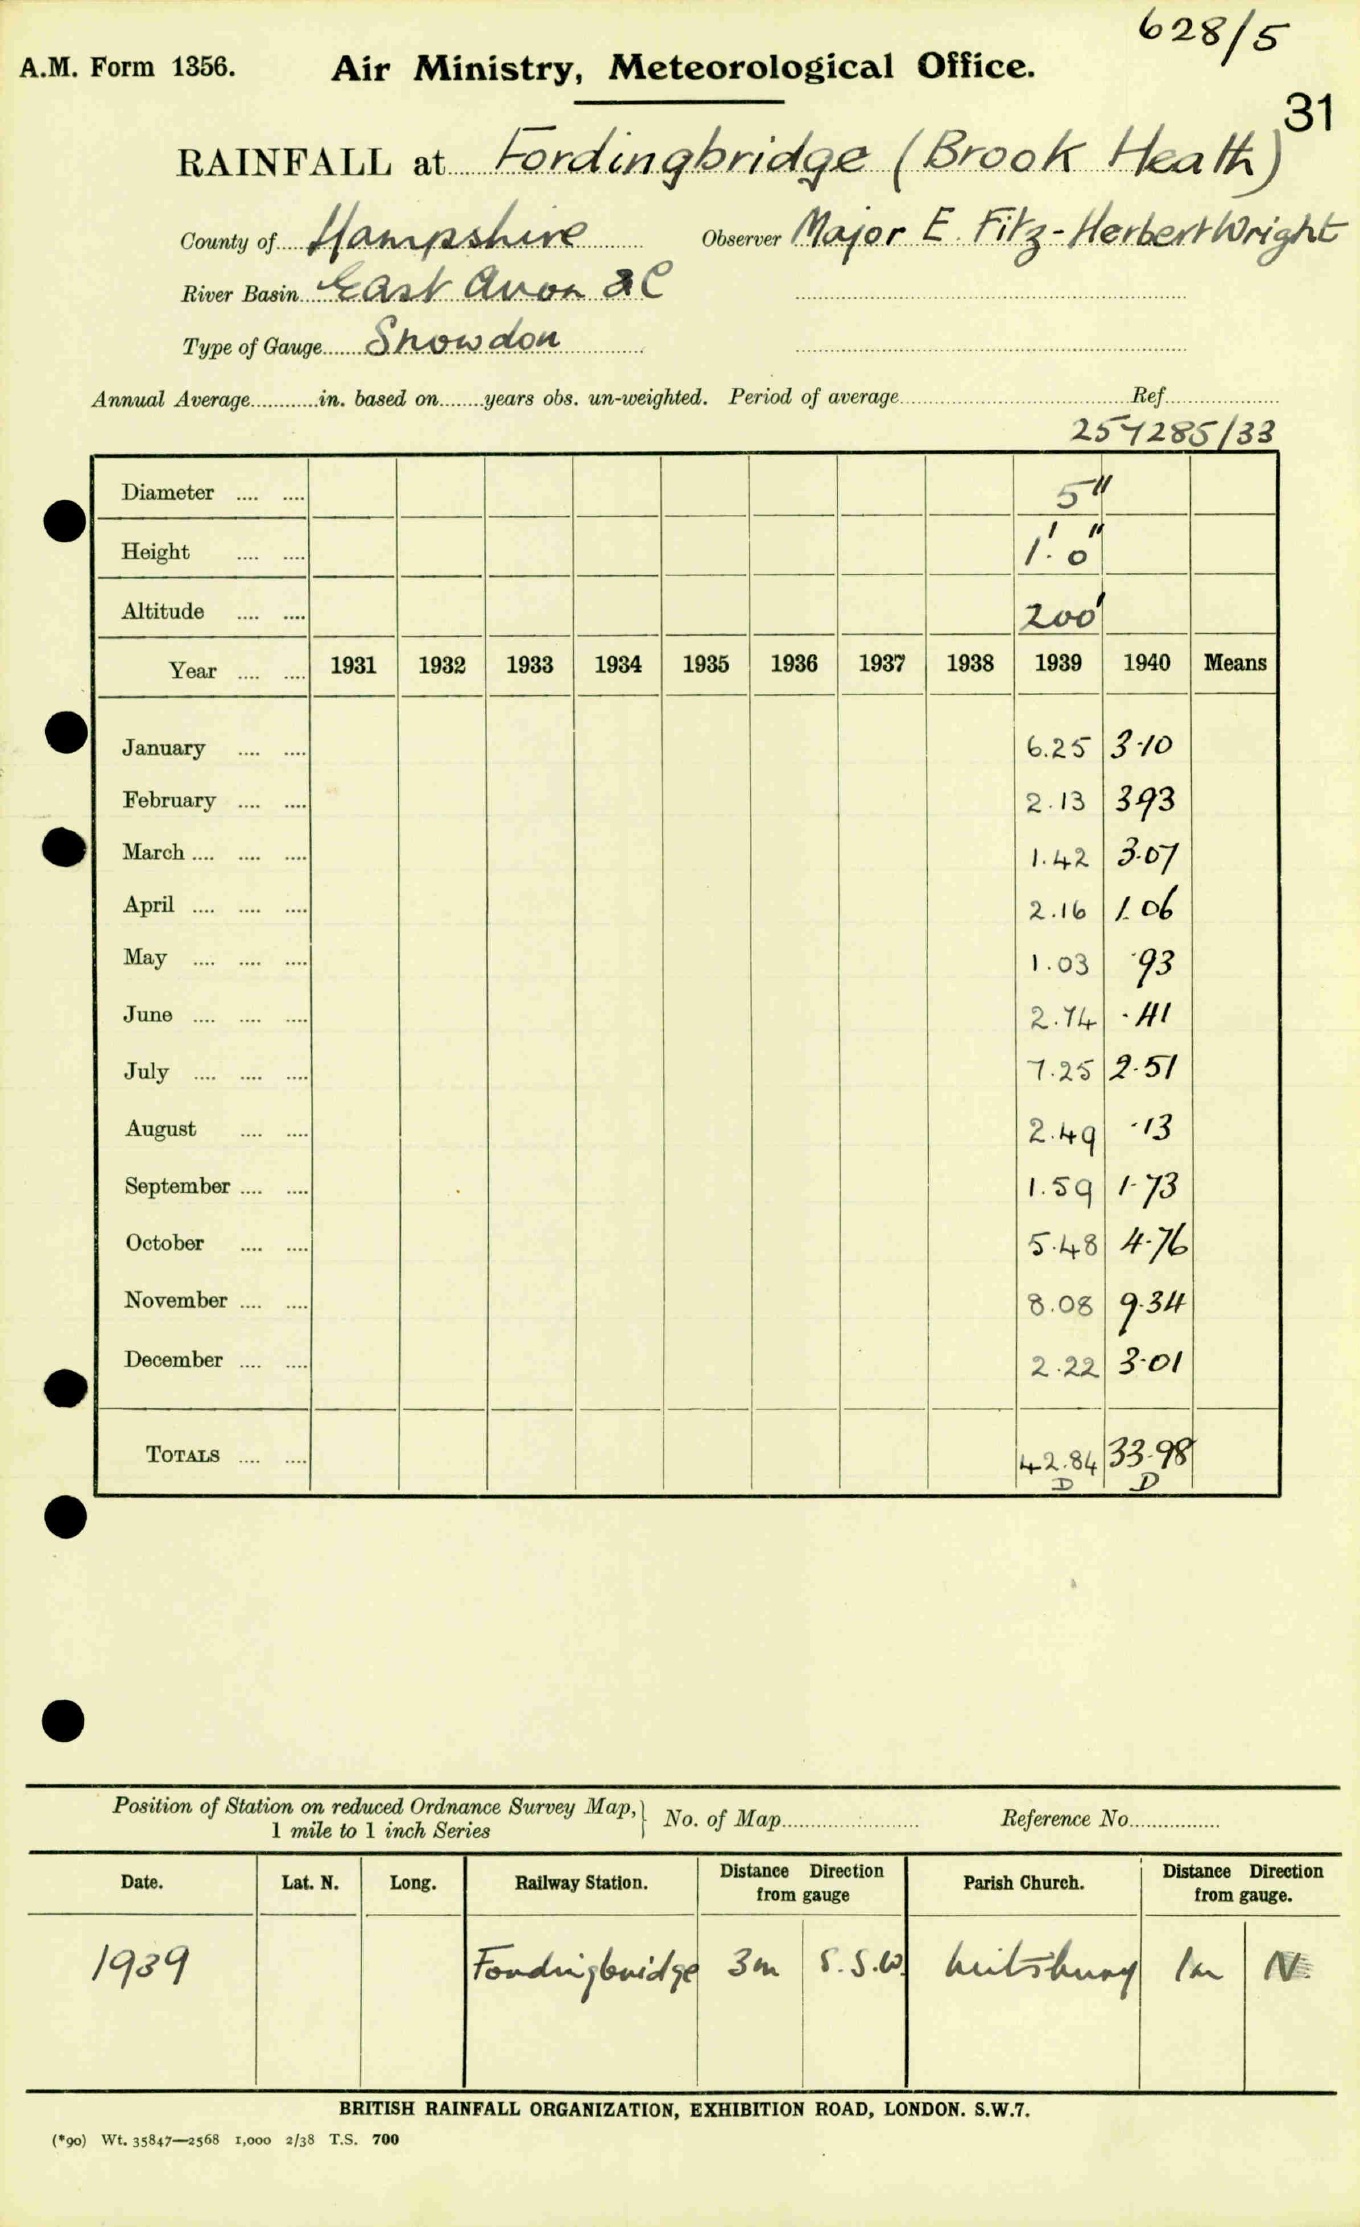 628/5
A.M. Form 1356. Air Ministry, Meteorological Office.
31
RAINFALL at Fordingbridge (Brook Heath)
County of Hampshire Observer Major E. Fitz-Herbert Wright
River Basin East Avon &C
Type of Gauge Snowdon
Annual Average............in. based on.......years obs. un-weighted. Period of average.............................. Ref...................
257285/33
Diameter .... .... 5"
Height .... .... 1'. 0"
Altitude .... .... 200'
Year .... .... 1931 1932 1933 1934 1935 1936 1937 1938 1939 1940 Means
January .... .... 6.25 3·10
February .... .... 2.13 393
March .... .... .... 1.42 3·07
April .... .... .... 2.16 1.06
May .... .... .... 1.03 ·93
June .... .... .... 2.74 ·41
July .... .... .... 7.25 2·51
August .... .... 2.49 ·13
September .... .... 1.59 1·73
October .... .... 5.48 4·76
November .... .... 8.08 9·34
December .... .... 2.22 3·01
TOTALS .... .... 42.84 33·98
D D
Position of Station on reduced Ordnance Survey Map, } No. of Map........................ Reference No................
1 mile to 1 inch Series
Date. Lat. N. Long. Railway Station. Distance Direction from gauge Parish Church. Distance Direction from gauge.
1939 Fordingbridge 3m S.S.W. 1m N.
BRITISH RAINFALL ORGANIZATION, EXHIBITION ROAD, LONDON. S.W.7.
(*90) Wt. 35847—2568 1,000 2/38 T.S. 700